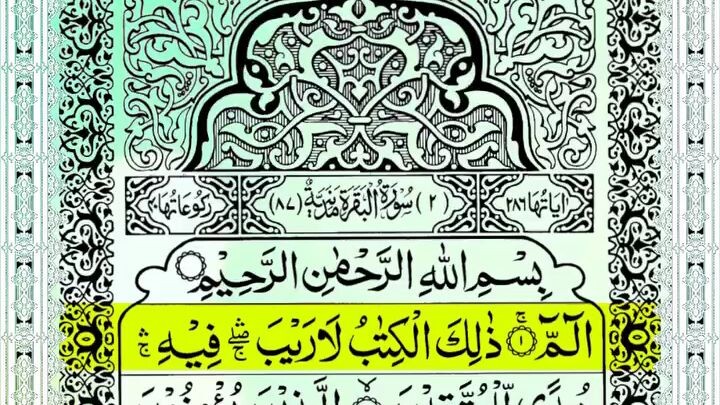 اٰیَاتُهَا ٢٨٦ (٢) سُوْرَةُ الْبَقَرَةِ مَدَنِیَّةٌ (٨٧) رُكُوْعَاتُهَا
بِسْمِ اللّٰهِ الرَّحْمٰنِ الرَّحِیْمِ
الٓمّٓ ۚ ١ ذٰلِكَ الْكِتٰبُ لَا رَیْبَ ۛۖۚ فِیْهِ ۛۚ
هُدًی لِّلْمُتَّقِیْنَ ۙ الَّذِیْنَ یُؤْمِنُوْنَ